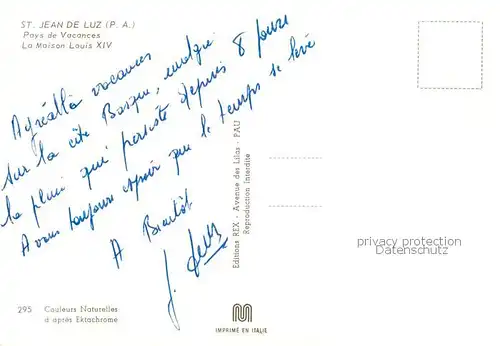 ST. JEAN DE LUZ (P. A.)
Pays de Vacances
La Maison Louis XIV
vacances
sur la côte Basque, malgré
la pluie qui persiste depuis 8 jours
toujours espoir que le temps se lève
A Bientôt
J.
Editions REX - Avenue des Lilas - PAU
Reproduction Interdite
privacy protection
Datenschutz
295 Couleurs Naturelles
d'après Ektachrome
IMPRIMÉ EN ITALIE